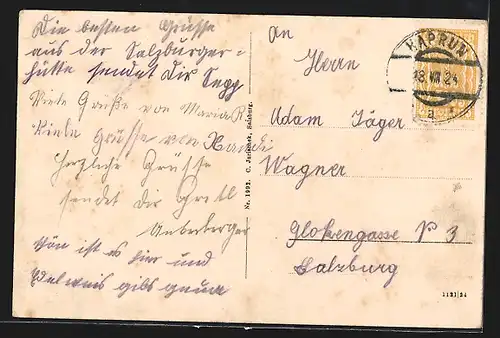 Die besten Grüsse
aus der Salzburger-
hütte sendet Dir Sepp
Viele Grüße von Maria R
Viele Grüsse von Handi
Herzliche Grüsse
sendet dir Gretl
Unterberger
Schön ist es hier und
Edelweis gibs genug
Nr. 1992. C. Jurischek, Salzburg.
An
Herrn
Adam Jäger
Wagner
Glokengasse No 3
Salzburg
KAPRUN
18.VIII.24
a
1121|24